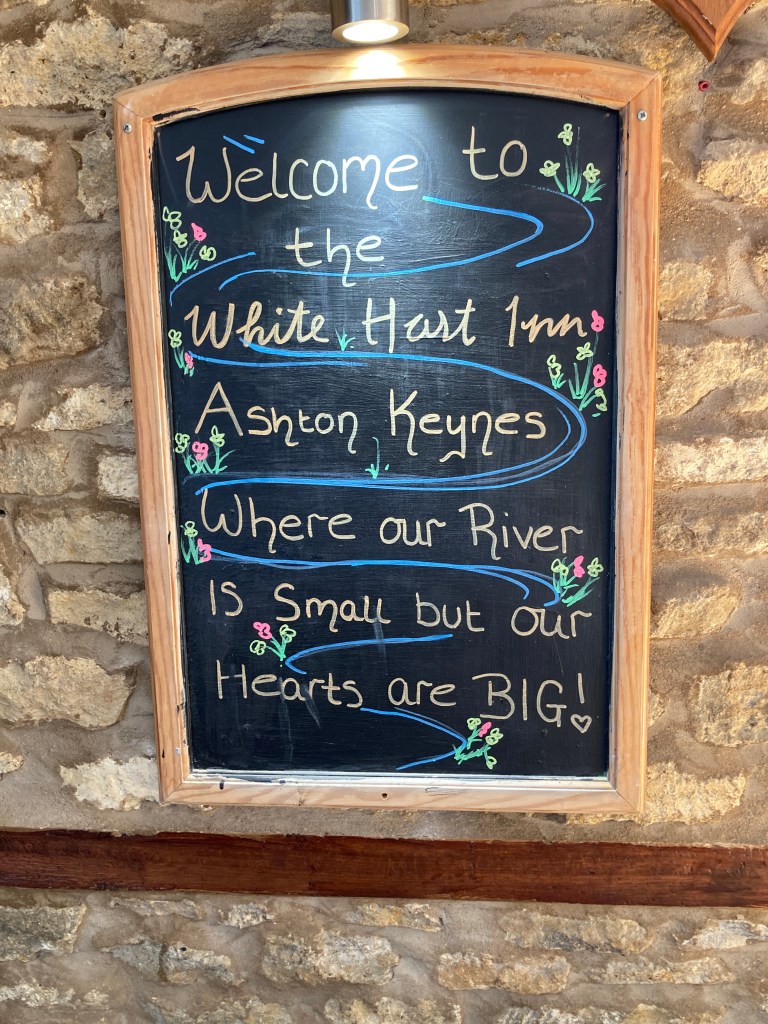 Welcome to
the
White Hart Inn
Ashton Keynes
Where our River
IS Small but our
Hearts are BIG!